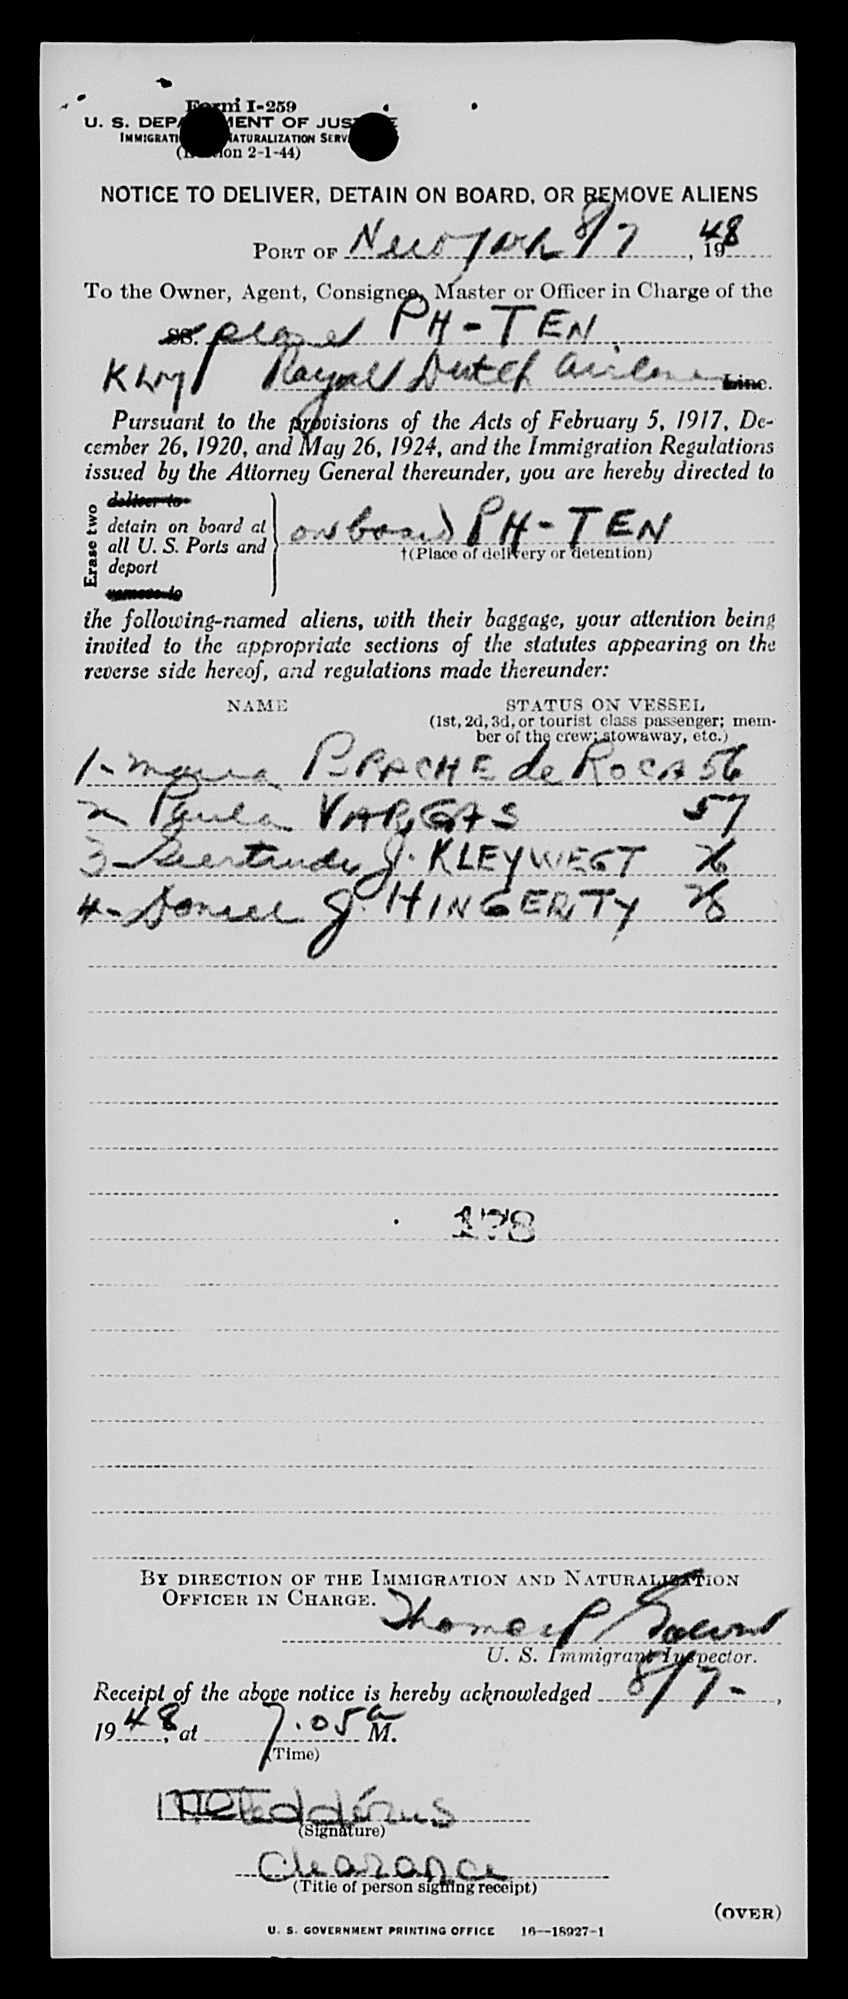 Form I-259
U. S. DEPARTMENT OF JUSTICE
IMMIGRATION NATURALIZATION SERVICE
(Edition 2-1-44)
NOTICE TO DELIVER, DETAIN ON BOARD, OR REMOVE ALIENS
PORT OF New York 8/7, 1948
To the Owner, Agent, Consignee, Master or Officer in Charge of the
SS. plane PH-TEN
KLM Royal Dutch Airlines Line.
Pursuant to the provisions of the Acts of February 5, 1917, De-
cember 26, 1920, and May 26, 1924, and the Immigration Regulations
issued by the Attorney General thereunder, you are hereby directed to
Erase two
deliver to
detain on board at
all U. S. Ports and
deport
remove to
on board PH-TEN
†(Place of delivery or detention)
the following-named aliens, with their baggage, your attention being
invited to the appropriate sections of the statutes appearing on the
reverse side hereof, and regulations made thereunder:
NAME STATUS ON VESSEL
(1st, 2d, 3d, or tourist class passenger; mem-
ber of the crew; stowaway, etc.)
1- Maria de ROCA 56
2- Paula VARGAS 57
3- Gertrude J. KLEYWEGT 76
4- Daniel J. HINGERTY
178
BY DIRECTION OF THE IMMIGRATION AND NATURALIZATION
OFFICER IN CHARGE.
Thomas P
U. S. Immigrant Inspector.
Receipt of the above notice is hereby acknowledged 8/7-,
1948, at 7.05 a M.
(Time)
(Signature)
Clearance
(Title of person signing receipt)
(OVER)
U. S. GOVERNMENT PRINTING OFFICE 16—18927-1